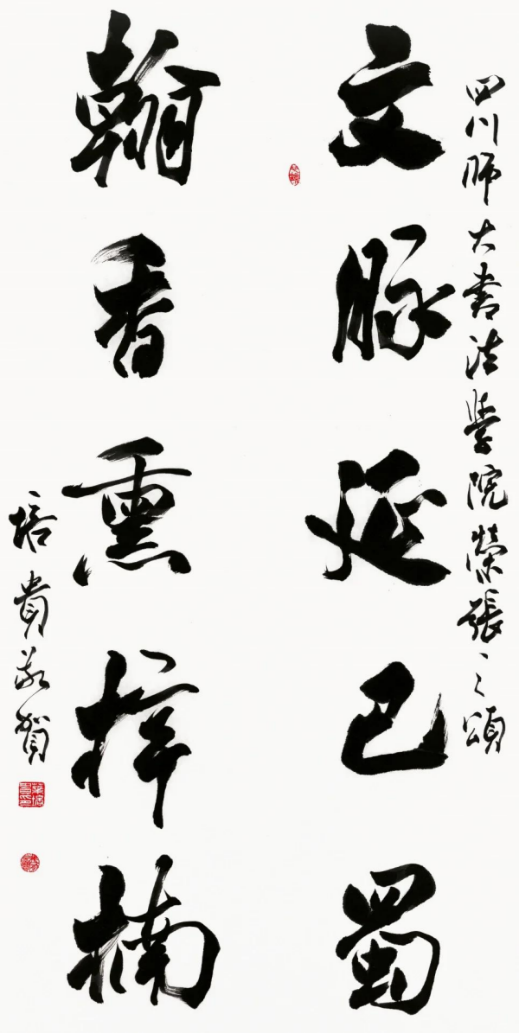 四川師大書法學院榮張之頌
文脈延巴蜀
翰香熏梓楠
培貴敬賀